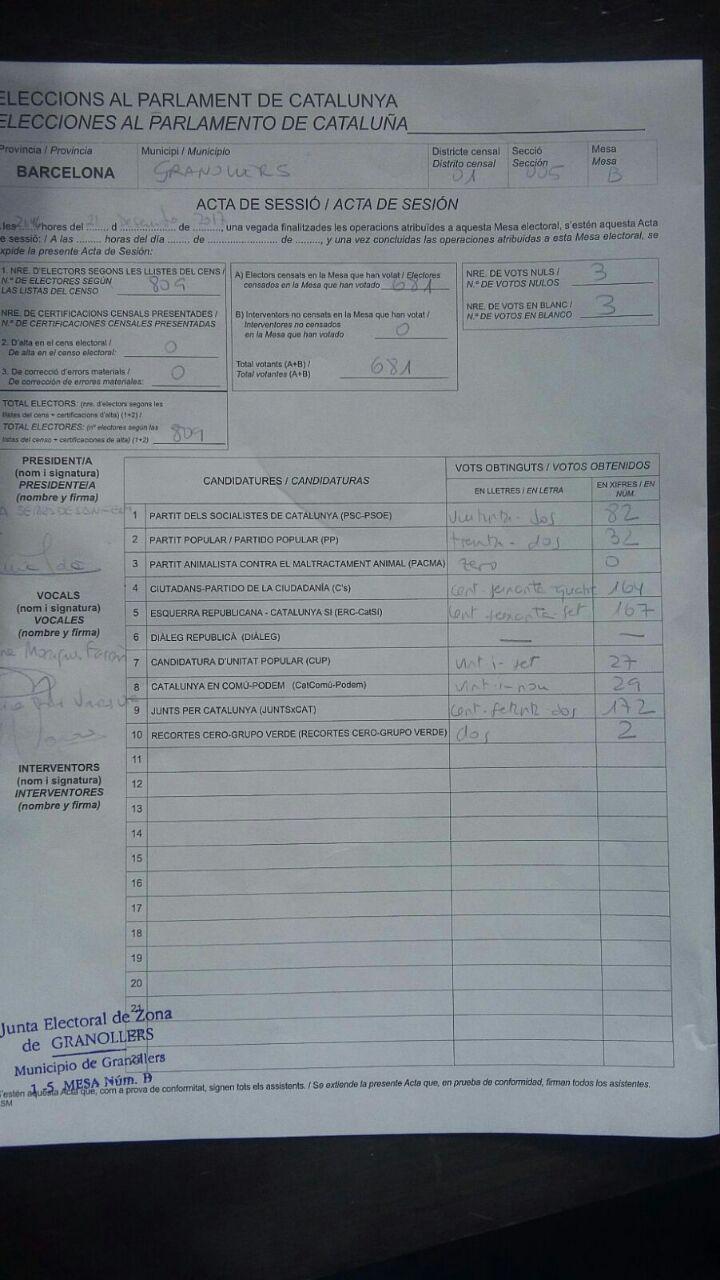 ELECCIONS AL PARLAMENT DE CATALUNYA
ELECCIONES AL PARLAMENTO DE CATALUÑA
Provincia / Provincia
BARCELONA
Municipi / Municipio
GRANOLLERS
Districte censal
Distrito censal
01
Secció
Sección
005
Mesa
Mesa
B
ACTA DE SESSIÓ / ACTA DE SESIÓN
les hores del 21 d Desembre de 2017, una vegada finalitzades les operacions atribuïdes a aquesta Mesa electoral, s'estén aquesta Acta
e sessió: / A las ......... horas del día ....... de ....................... de ........, y una vez concluidas las operaciones atribuidas a esta Mesa electoral, se
xpide la presente Acta de Sesión:
1. NRE. D'ELECTORS SEGONS LES LLISTES DEL CENS /
N.º DE ELECTORES SEGÚN
LAS LISTAS DEL CENSO 809
NRE. DE CERTIFICACIONS CENSALS PRESENTADES /
N.º DE CERTIFICACIONES CENSALES PRESENTADAS
2. D'alta en el cens electoral /
De alta en el censo electoral: 0
3. De correcció d'errors materials /
De corrección de errores materiales: 0
TOTAL ELECTORS: (nre. d'electors segons les
listes del cens + certificacions d'alta) (1+2) /
TOTAL ELECTORES: (nº electores según las
listas del censo + certificaciones de alta) (1+2) 809
A) Electors censats en la Mesa que han votat / Electores
censados en la Mesa que han votado 681
B) Interventors no censats en la Mesa que han votat /
Interventores no censados
en la Mesa que han votado 0
Total votants (A+B) /
Total votantes (A+B) 681
NRE. DE VOTS NULS /
N.º DE VOTOS NULOS 3
NRE. DE VOTS EN BLANC /
N.º DE VOTOS EN BLANCO 3
PRESIDENT/A
(nom i signatura)
PRESIDENTE/A
(nombre y firma)
VOCALS
(nom i signatura)
VOCALES
(nombre y firma)
INTERVENTORS
(nom i signatura)
INTERVENTORES
(nombre y firma)
CANDIDATURES / CANDIDATURAS
VOTS OBTINGUTS / VOTOS OBTENIDOS
EN LLETRES / EN LETRA
EN XIFRES / EN
NÚM.
1 PARTIT DELS SOCIALISTES DE CATALUNYA (PSC-PSOE) vuitanta-dos 82
2 PARTIT POPULAR / PARTIDO POPULAR (PP) trenta-dos 32
3 PARTIT ANIMALISTA CONTRA EL MALTRACTAMENT ANIMAL (PACMA) zero 0
4 CIUTADANS-PARTIDO DE LA CIUDADANÍA (C's) cent-seixanta quatre 164
5 ESQUERRA REPUBLICANA - CATALUNYA SI (ERC-CatSí) cent seixanta-set 167
6 DIÀLEG REPUBLICÀ (DIÀLEG) — —
7 CANDIDATURA D'UNITAT POPULAR (CUP) vint-i-set 27
8 CATALUNYA EN COMÚ-PODEM (CatComú-Podem) vint-i-nou 29
9 JUNTS PER CATALUNYA (JUNTSxCAT) cent-setanta-dos 172
10 RECORTES CERO-GRUPO VERDE (RECORTES CERO-GRUPO VERDE) dos 2
11
12
13
14
15
16
17
18
19
20
21
Junta Electoral de Zona
de GRANOLLERS
Municipio de Granollers
1-5 MESA Núm. B
s'estén aquesta Acta que, com a prova de conformitat, signen tots els assistents. / Se extiende la presente Acta que, en prueba de conformidad, firman todos los asistentes.
SM